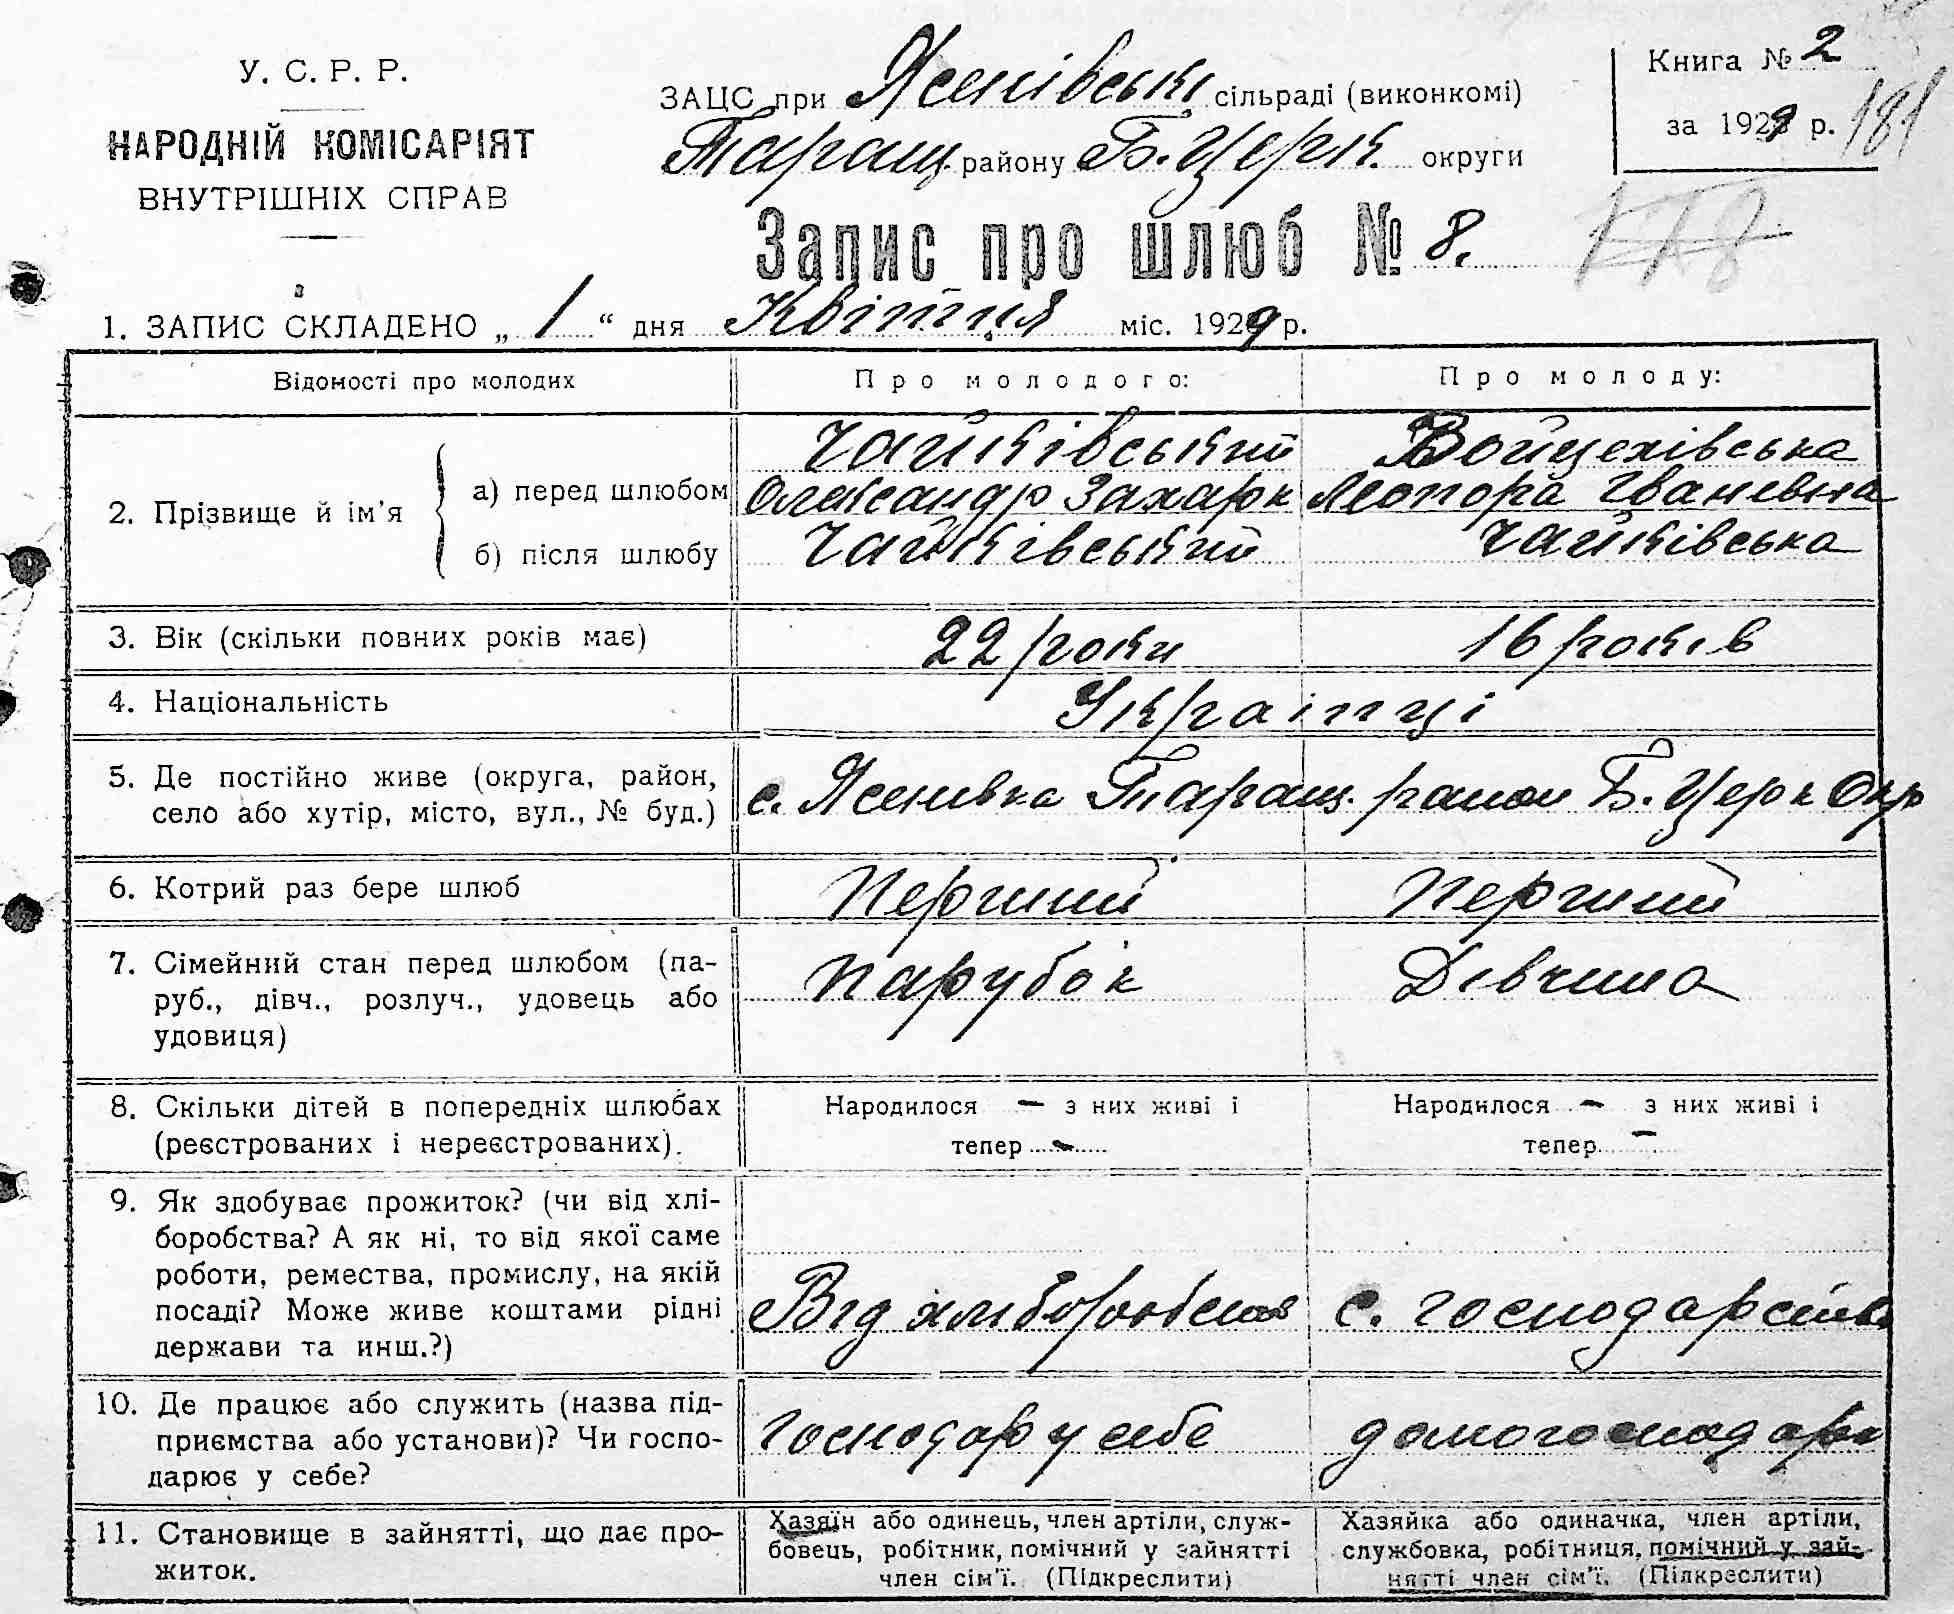 У. С. Р. Р.
НАРОДНІЙ КОМІСАРІЯТ
ВНУТРІШНІХ СПРАВ
ЗАЦС при Ясенівські сільраді (виконкомі)
Таращ. району Б. Церк. округи
Книга № 2
за 1929 р. 181
178
Запис про шлюб № 8.
1. ЗАПИС СКЛАДЕНО „ 1 “ дня Квітня міс. 1929 р.
Відомості про молодих
Про молодого:
Про молоду:
2. Прізвище й ім’я
а) перед шлюбом
Чайківський
Олександр Захарк
Войцехівська
Леонора Іванивна
б) після шлюбу
Чайківський
Чайківська
3. Вік (скільки повних років має)
22 роки
16 років
4. Національність
Українці
5. Де постійно живе (округа, район,
село або хутір, місто, вул., № буд.)
с. Ясенивка Таращ. район Б. Церк Окр
6. Котрий раз бере шлюб
Перший
Перший
7. Сімейний стан перед шлюбом (па-
руб., дівч., розлуч., удовець або
удовиця)
Парубок
Дівчина
8. Скільки дітей в попередніх шлюбах
(реєстрованих і нереєстрованих).
Народилося — з них живі і
тепер —
Народилося — з них живі і
тепер —
9. Як здобуває прожиток? (чи від хлі-
боробства? А як ні, то від якої саме
роботи, ремества, промислу, на якій
посаді? Може живе коштами рідні
держави та инш.?)
Від хліборобства
с. господарства
10. Де працює або служить (назва під-
приємства або установи)? Чи госпо-
дарює у себе?
Господар у себе
домогосподарка
11. Становище в зайнятті, що дає про-
житок.
Хазяїн або одинець, член артіли, служ-
бовець, робітник, помічний у зайнятті
член сім’ї. (Підкреслити)
Хазяйка або одиначка, член артіли,
службовка, робітниця, помічний у зай-
нятті член сім’ї. (Підкреслити)